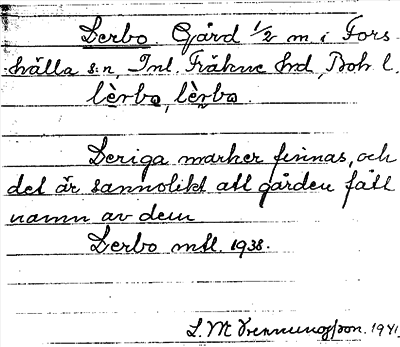 Lerbo. Gård 1/2 m. i Fors-
hälla s:n, Inl. Fräkne hd, Boh. l.
lèrbo, lèrbo.
Leriga marker finnas, och
det är sannolikt att gården fått
namn av dem
Lerbo mtl. 1938.
L. M. Svenungsson. 1941.